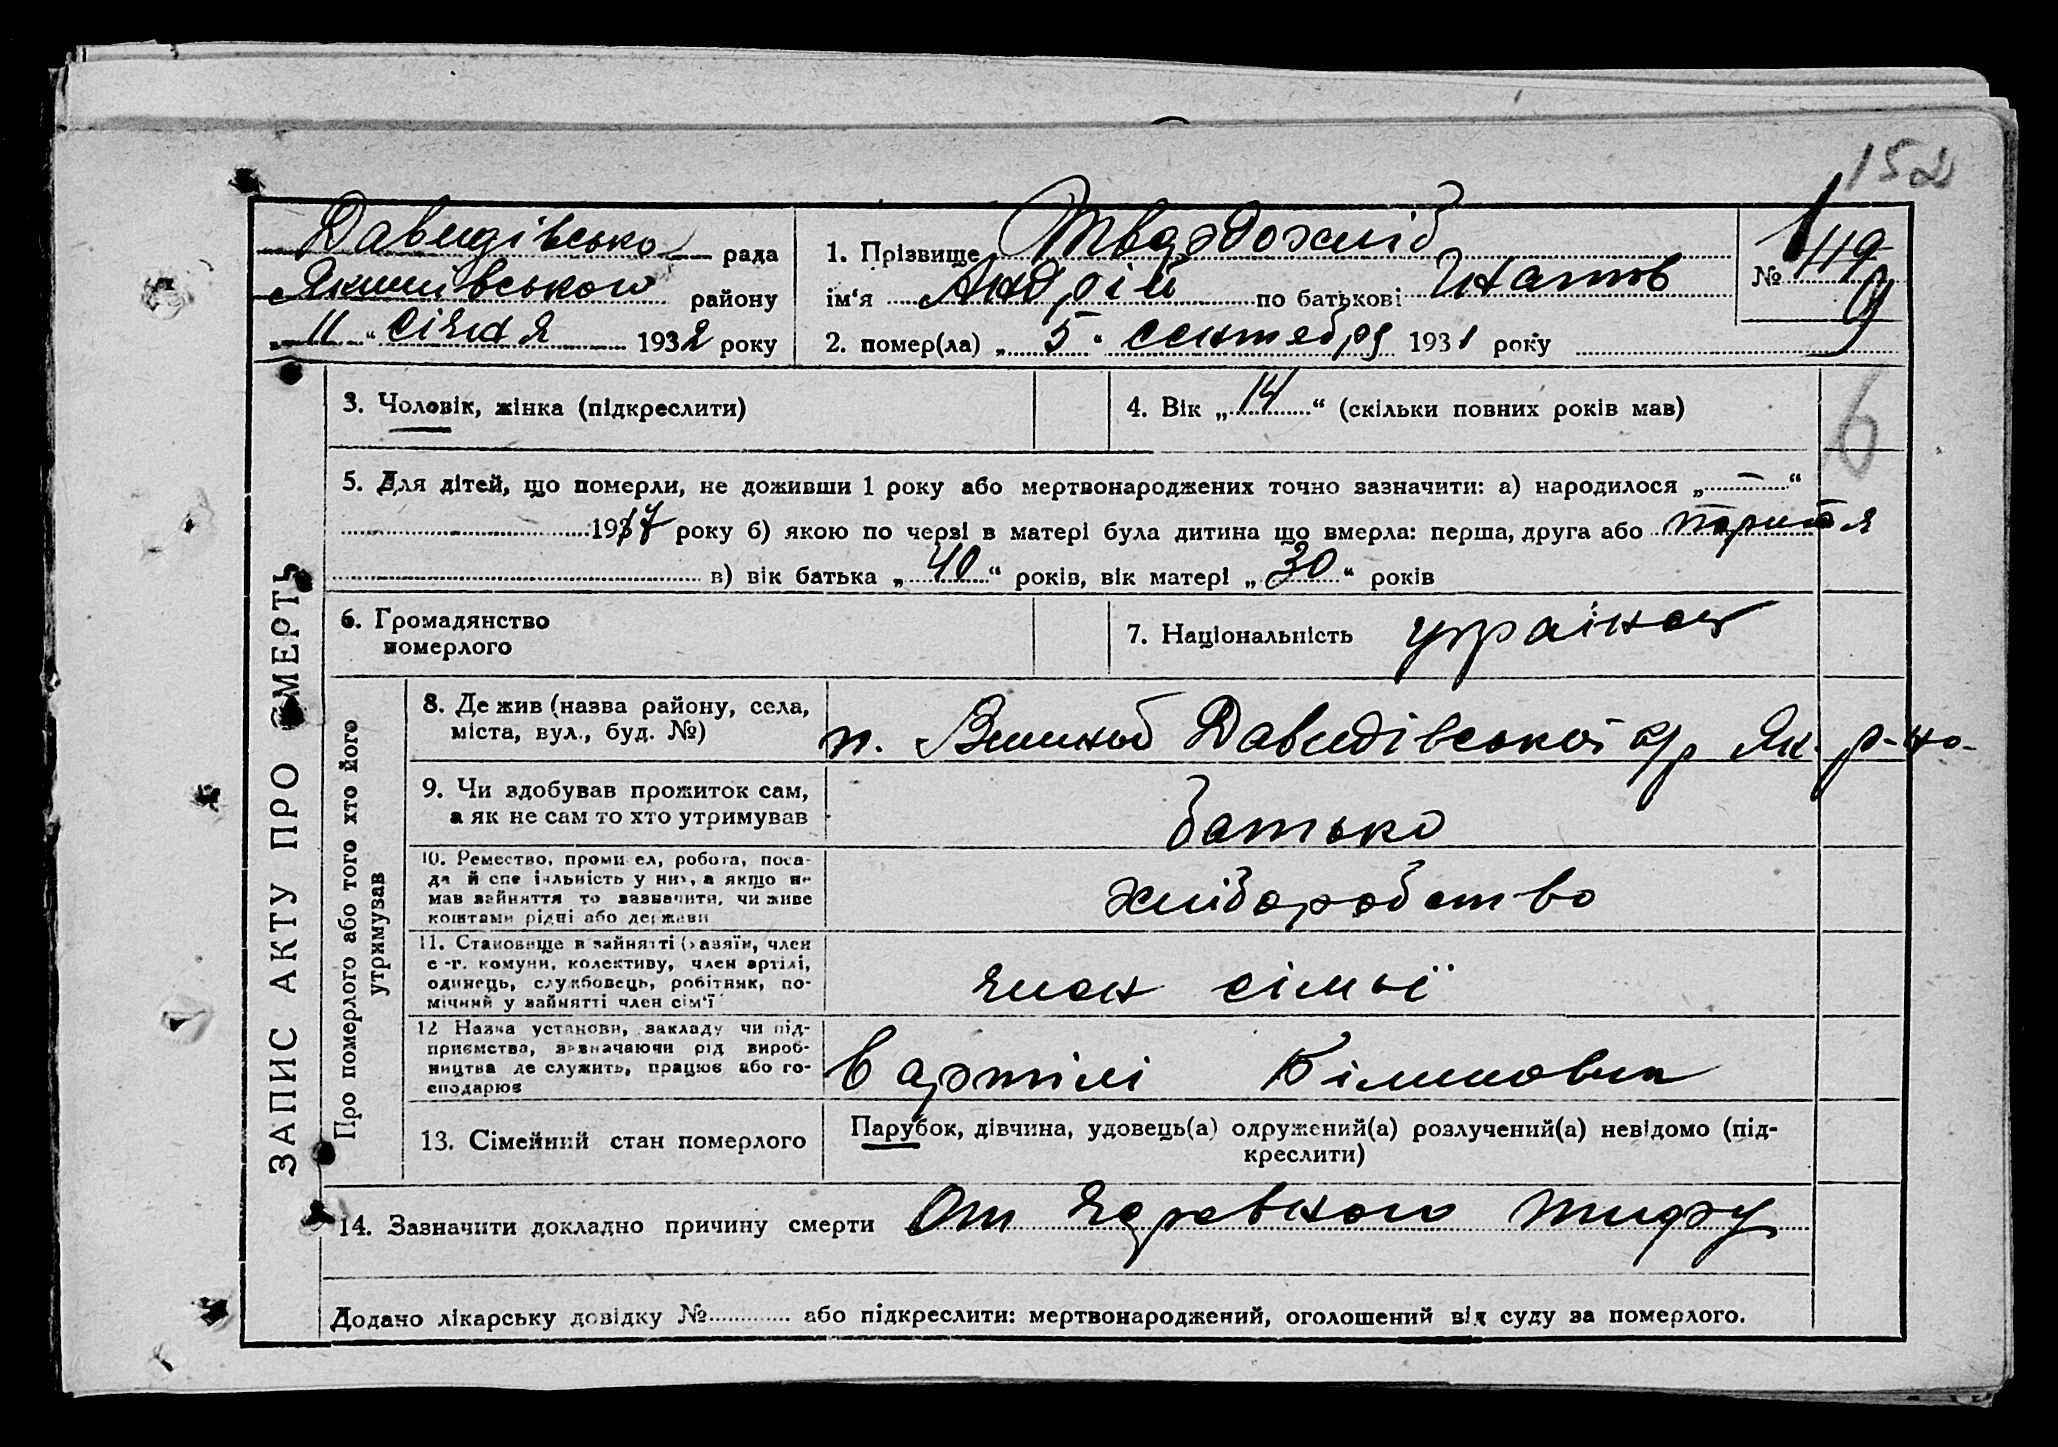 152
Давидівсько рада
Якимівського району
„ 11 “ січня 1932 року
1. Прізвище Твердохліб
ім‘я Андрій по батькові Игнатов
№ 119
9
2. помер(ла) „ 5 “ сентебря 1931 року
ЗАПИС АКТУ ПРО СМЕРТЬ
3. Чоловік, жінка (підкреслити)
4. Вік „ 14 “ (скільки повних років мав)
6
5. Для дітей, що померли, не доживши 1 року або мертвонароджених точно зазначити: а) народилося „ — “
1917 року б) якою по черзі в матері була дитина що вмерла: перша, друга або
в) вік батька „ 40 “ років, вік матері „ 30 “ років
6. Громадянство
померлого
7. Національність українец
Про померлого або того хто його
утримував
8. Де жив (назва району, села,
міста, вул., буд. №)
п. Давидівської с/р Як. р-но-
9. Чи здобував прожиток сам,
а як не сам то хто утримував
батько
10. Ремество, промисел, робота, поса-
да й спеціяльність у них, а якщо не
мав зайняття то зазначити, чи живе
коштами рідні або держави
хліборобство
11. Становище в зайнятті (хазяїн, член
с-г. комуни, колективу, член артілі,
одинець, службовець, робітник, по-
мічний у зайнятті член сім‘ї
член сімьї
12 Назва установи, закладу чи під-
приємства, зазначаючи рід вироб-
ництва де служить, працює або го-
сподарює
в артілі
13. Сімейний стан померлого
Парубок, дівчина, удовець(а) одружений(а) розлучений(а) невідомо (під-
креслити)
14. Зазначити докладно причину смерти От тифу
Додано лікарську довідку № або підкреслити: мертвонароджений, оголошений від суду за померлого.